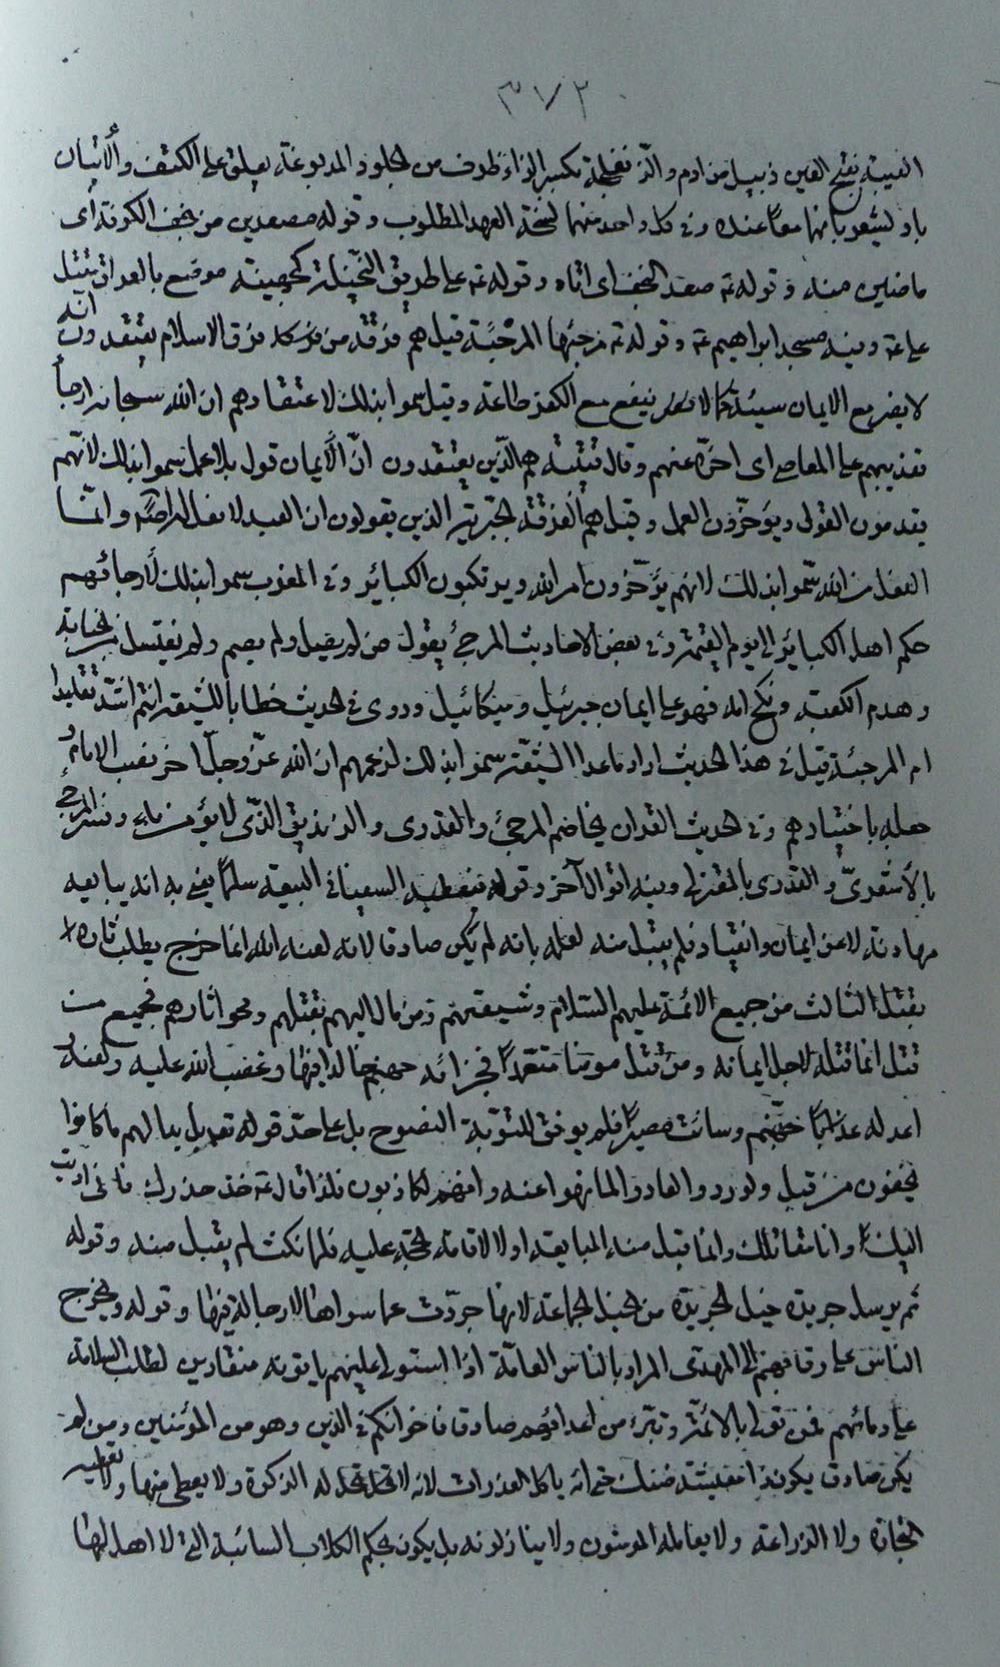 ٣٧٢
العيبة بفتح العين زبيل من ادم والزنفيلجة بكسر الزاء ظروف من الجلود المدبوغة يعلق على الكتف والاتيان
باولشعوبانهما معا عنده وفى كل واحد منهما نسخة العهد المطلوب وقوله مصعدين من نجف الكوفة أى
ماضين منه وقوله ع صعد النجف اى اتاه وقوله ع على طريق النخيلة كجهينة موضع بالعراق بقتل
على ع وفيه مسجد ابراهيم ع وقوله ع مرجئها المرجئة قيل هم فرقة من فرق الاسلام يعتقدون انه
لا يضر مع الايمان سيئة كما لا ينفع مع الكفر طاعة وقيل سموا بذلك لاعتقادهم ان الله سبحانه ارجأ
تعذيبهم على المعاصى اى اخره عنهم وقال قتيبة هم الذين يعتقدون انّ الأيمان قول بلا عمل سموا بذلك لانهم
يقدمون القول ويؤخرون العمل وقيل هم الفرقة الجبرية الذين يقولون ان العبد لا فعل له وانما
الفعل من الله سموا بذلك لانهم يؤخرون امر الله ويرتكبون الكبائر وفى المغرب سموا بذلك لأرجائهم
حكم اهل الكبائر الى يوم القيمة وفى بعض الاحاديث المرجئ يقول من لم يصل ولم يصم ولم يغتسل من جنابة
وهدم الكعبة ونكح امه فهو على ايمان جبرئيل وميكائيل وروى فى الحديث خطابا للشيعة انتم اشد تقليدا
ام المرجئة قيل فى هذا الحديث اراد ما عدا الشيعة سموا بذلك لزعمهم ان الله عزّ وجلّ اخر نصب الامام و
جعله باختيارهم وفى الحديث القران يخاصم المرجئ والقدرى والزنديق الذى لا يؤمن به وفسر المرجئ
بالأشعرىّ والقدرى بالمعتزلى وفيه اقوال آخر وقوله فيعطيه السفيانى البيعة سلما يعنى به انه يبايعه
مهادنة لا عن ايمان وانقياد فلم يقبل منه لعلمه بانه لم يكن صادقا لانه لعنه الله انما خرج يطلب ثاره
بقتل الثالث من جميع الائمة عليهم السلام وشيعتهم ومن مال اليهم بقتلهم ومحو اثارهم فجميع من
قتل انما قتله لاجل ايمانه ومن قتل مومنا متعمدا فجزائه جهنم خالدا فيها وغضب الله عليه ولعنه و
اعد له عذابا جهنم وسائت مصيرا فلم يوفق للتوبة النصوح بل على حد قوله تع بل بدا لهم ما كانوا
يخفون من قبل ولو ردوا لعادوا لما نهوا عنه وانهم لكاذبون فلذا قال ع خذ حذرك فاننى اديت
اليك وانا مقاتلك وانما قبل منه المبايعة اولا لاقامة الحجة عليه فلما نكث لم يقبل منه وقوله
ثم يرسل جريدة خيل الجريدة من الخيل الجماعة لانها جردت عما سواها لا رجالة فيها وقوله ويخرج
الناس على رقابهم الى المهدى المراد بالناس العامّة اذا استولى عليهم ياتونه منقادين لطلب السلامة
على دمائهم فمن تولى بالائمة وتبرء من اعدائهم صادقا فاخوانكم فى الدين وهو من المؤمنين ومن لم
يكن صادق يكون معيشته ضنك حتى انه ياكل العذرات لانه لا تحل له الزكوة ولا يعطى منها ولا
التجارة ولا الزراعة ولا يعامله المومنون ولا ينازلونه بل يكون بحكم الكلاب السائبة التى لا اهل لها